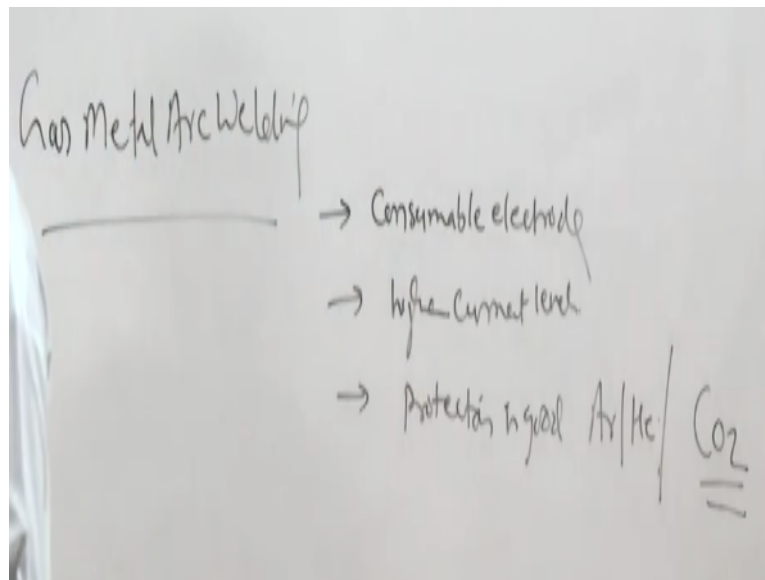 Gas Metal Arc Welding
→ Consumable electrode
→ higher Current level
→ Protection is good Ar/He/ CO2